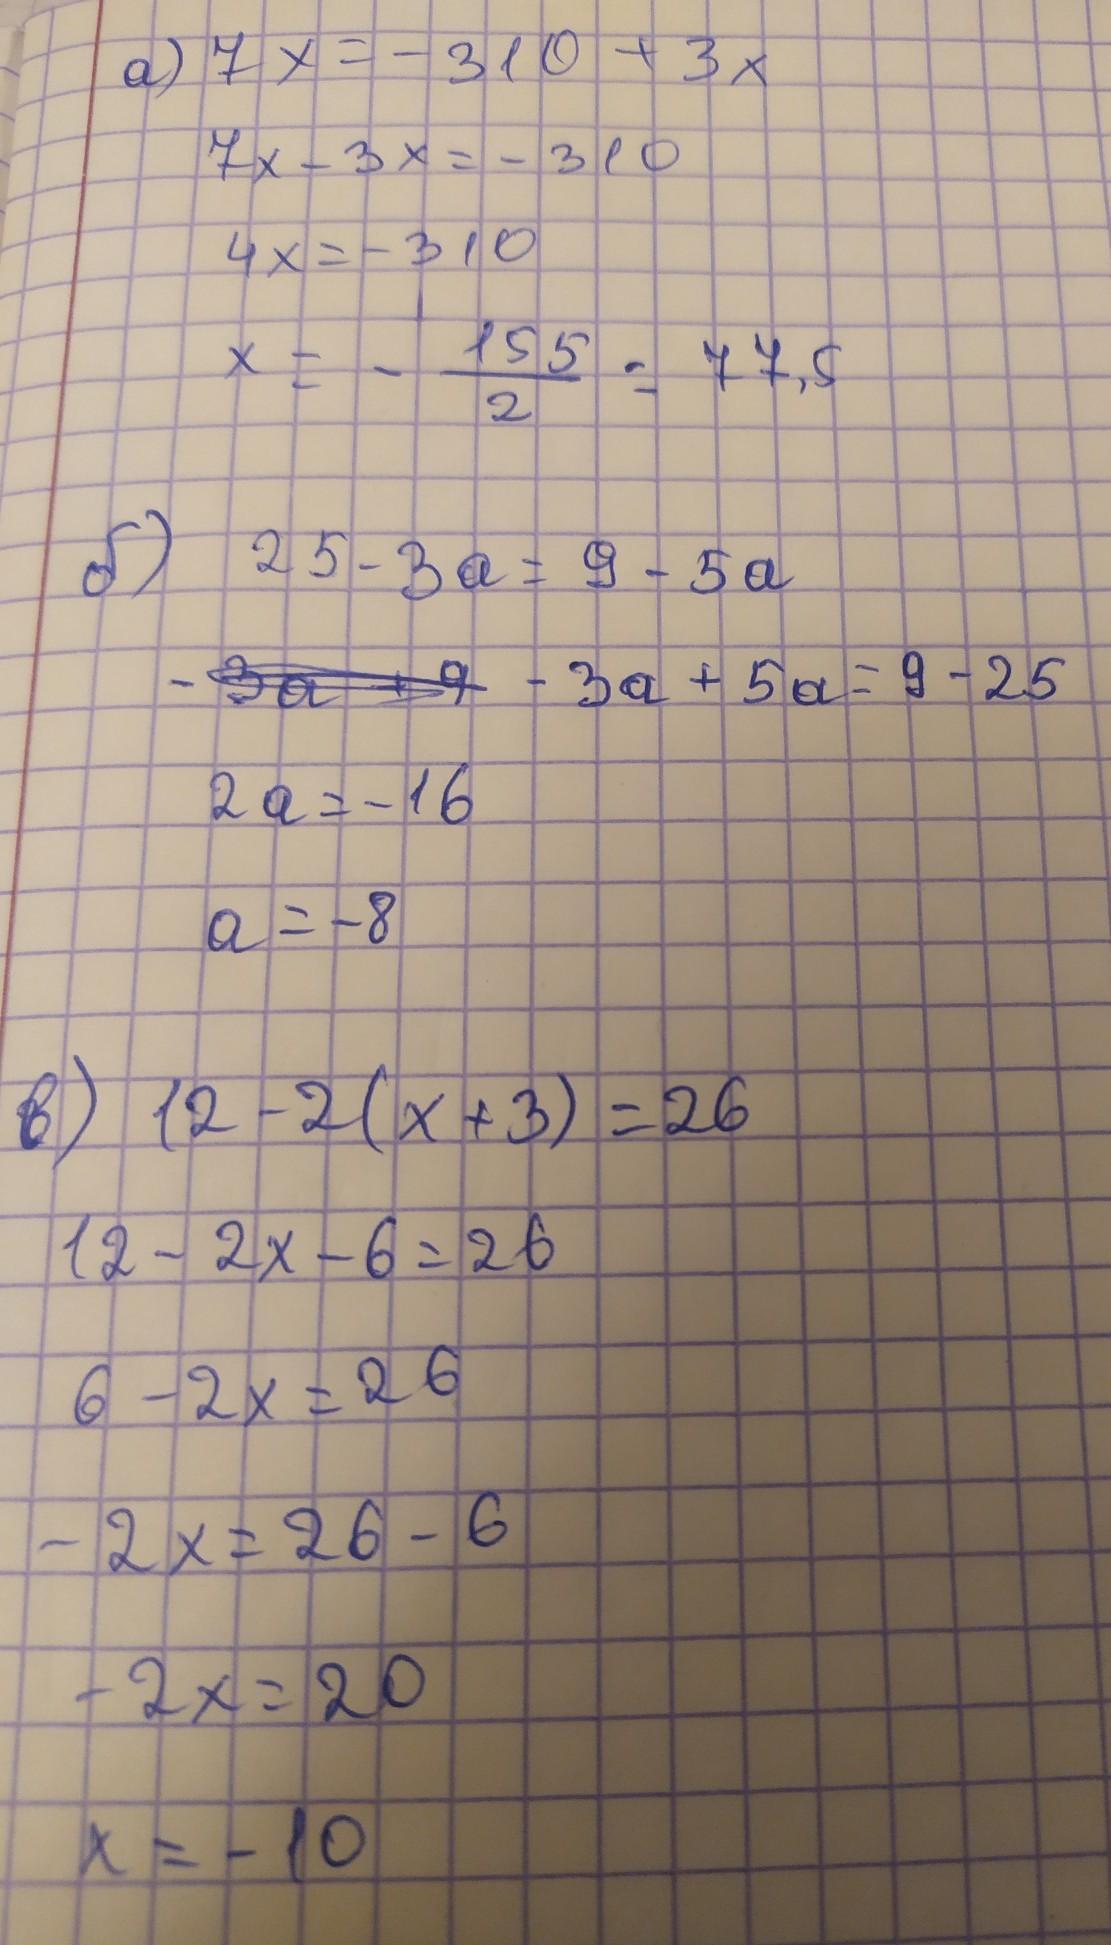 а) 7x = -310 + 3x
7x - 3x = -310
4x = -310
x = - 155/2 = 77,5
б) 25 - 3a = 9 - 5a
- 3a + 9 - 3a + 5a = 9 - 25
2a = -16
a = -8
в) 12 - 2(x + 3) = 26
12 - 2x - 6 = 26
6 - 2x = 26
- 2x = 26 - 6
- 2x = 20
x = -10